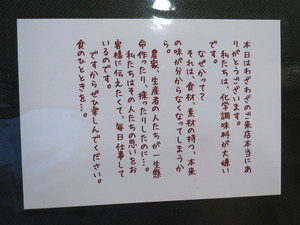 本日はわざわざのご来店本当にあ
りがとうございます。
私たちは、化学調味料が大嫌い
です。
なぜかって？
それは、食材、素材の持つ、本来
の味が分からなくなってしまうか
ら。
農家、生産者の人たちが一生懸
命作ったり、採ったりしたのに…。
私たちはその人たちの思いをお
客様に伝えたくて、毎日仕事して
いるのです。
ですからぜひ楽しんでください。
食のひとときを…。